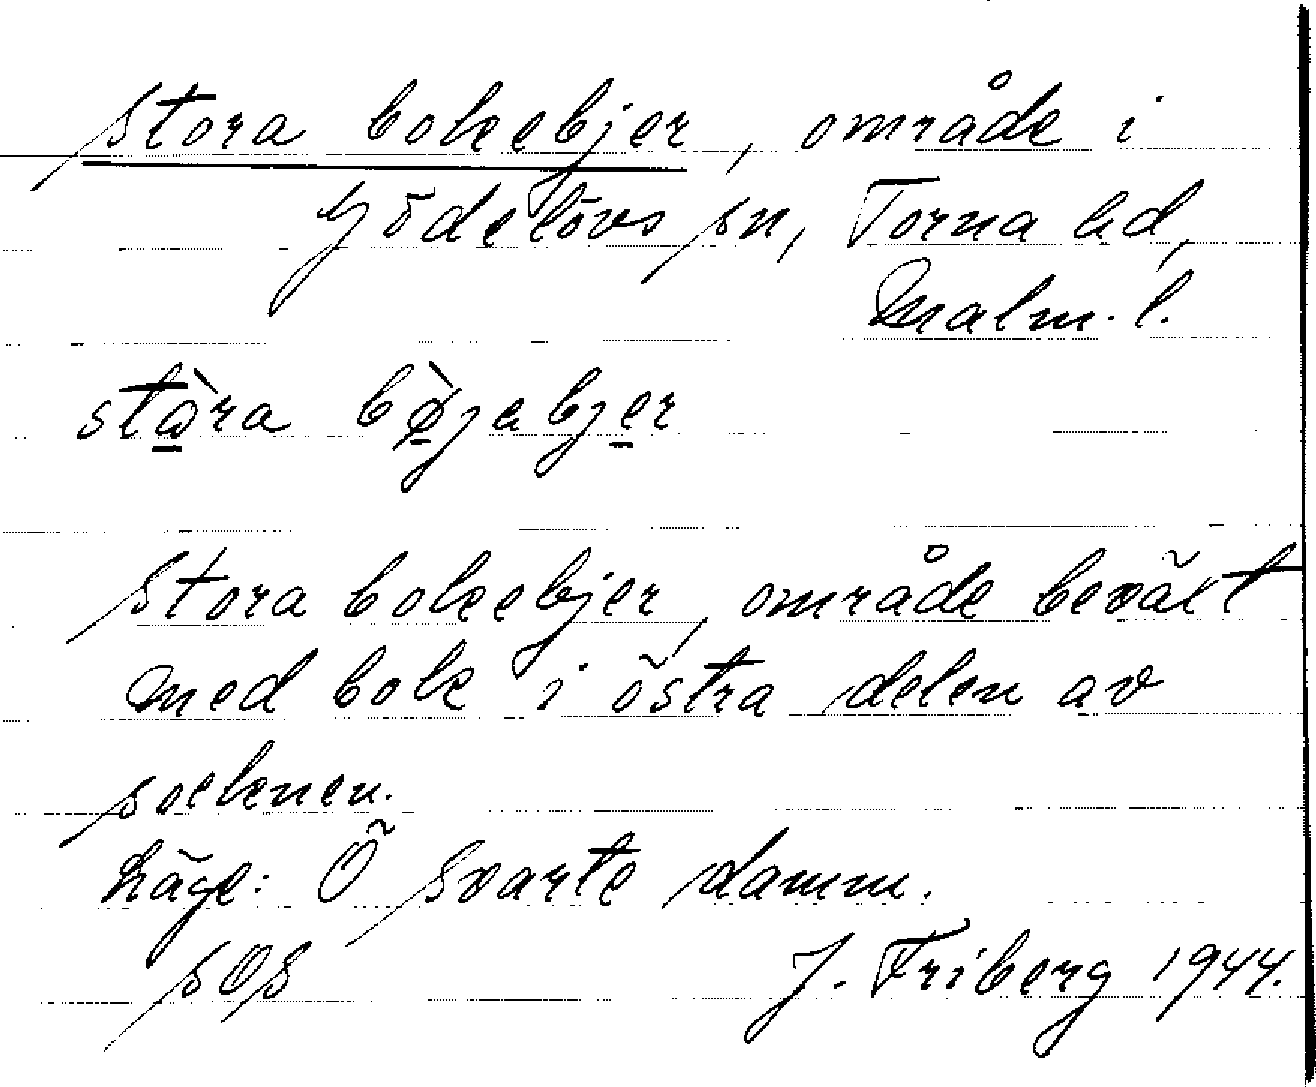 Stora bokebjer, område i
Gödelövs sn, Torna hd,
Malm. l.
stò̱ra bø̱̀jabje̱r
Stora bokebjer, område beväxt
med bok i östra delen av
socknen.
Läge: Ö Svarte damm.
SOS J. Friberg 1944.